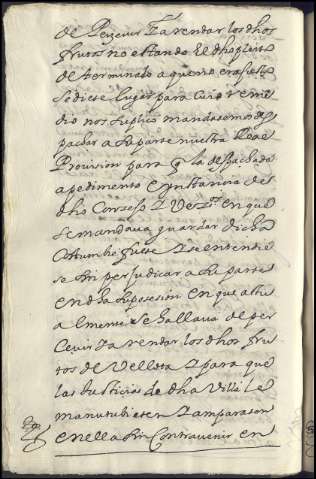 de Perzevir Y arendar los dhos
frutos no estando El dho pleito
determinado a que no era justo
se diese lugar para cuio reme
dio nos suplico mandasemos des
pachar a su parte nuestra Real
Provision para q la despachada
a pedimento e Ynstancia de el
dho Conzejo Y Vez.os en que
se mandava guardar dicha
Costumbre fuese Y se entendie
se sin perjudicar a su parte
en dha su posesion en que actu
almente se hallava de per
cevir Y arendar los dhos fru
tos de Vellota Y para que
las Justicias de dha Villa le
manutubiesen Y amparasen
en ella sin Contravenir en